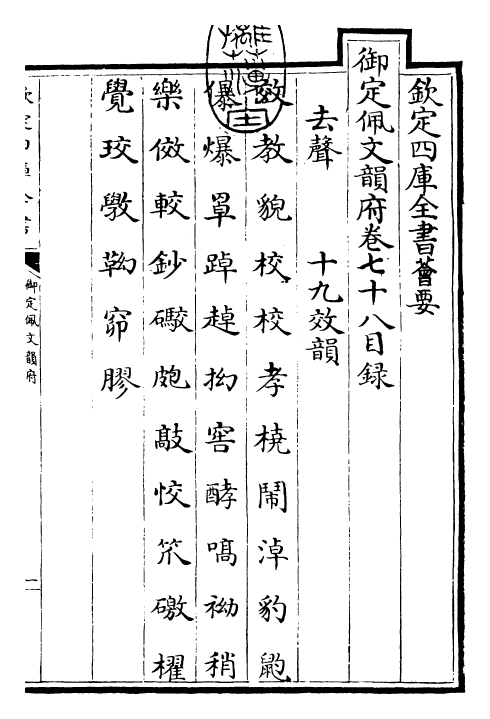 欽定四庫全書薈要
御定佩文韻府卷七十八目録
去聲　十九效韻
效教貌校校孝橈鬧淖豹鼩
儤爆罩踔趠抝窖酵嗃袎稍
樂傚較鈔礮皰敲恔笊磝櫂
覺珓斆靿窌膠
御定佩文韻府
一